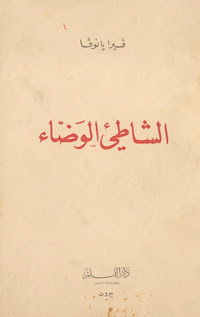 ڤيرا پانوڤا
الشاطئ الوَضّاء
دار القلم
بيروت